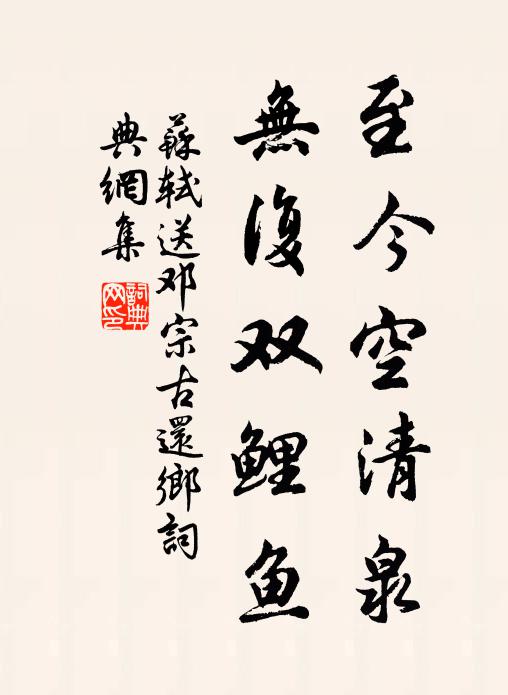 至今空清泉
無復双鲤魚
蘇軾送邓宗古還鄉詞
典網集
詞典网印